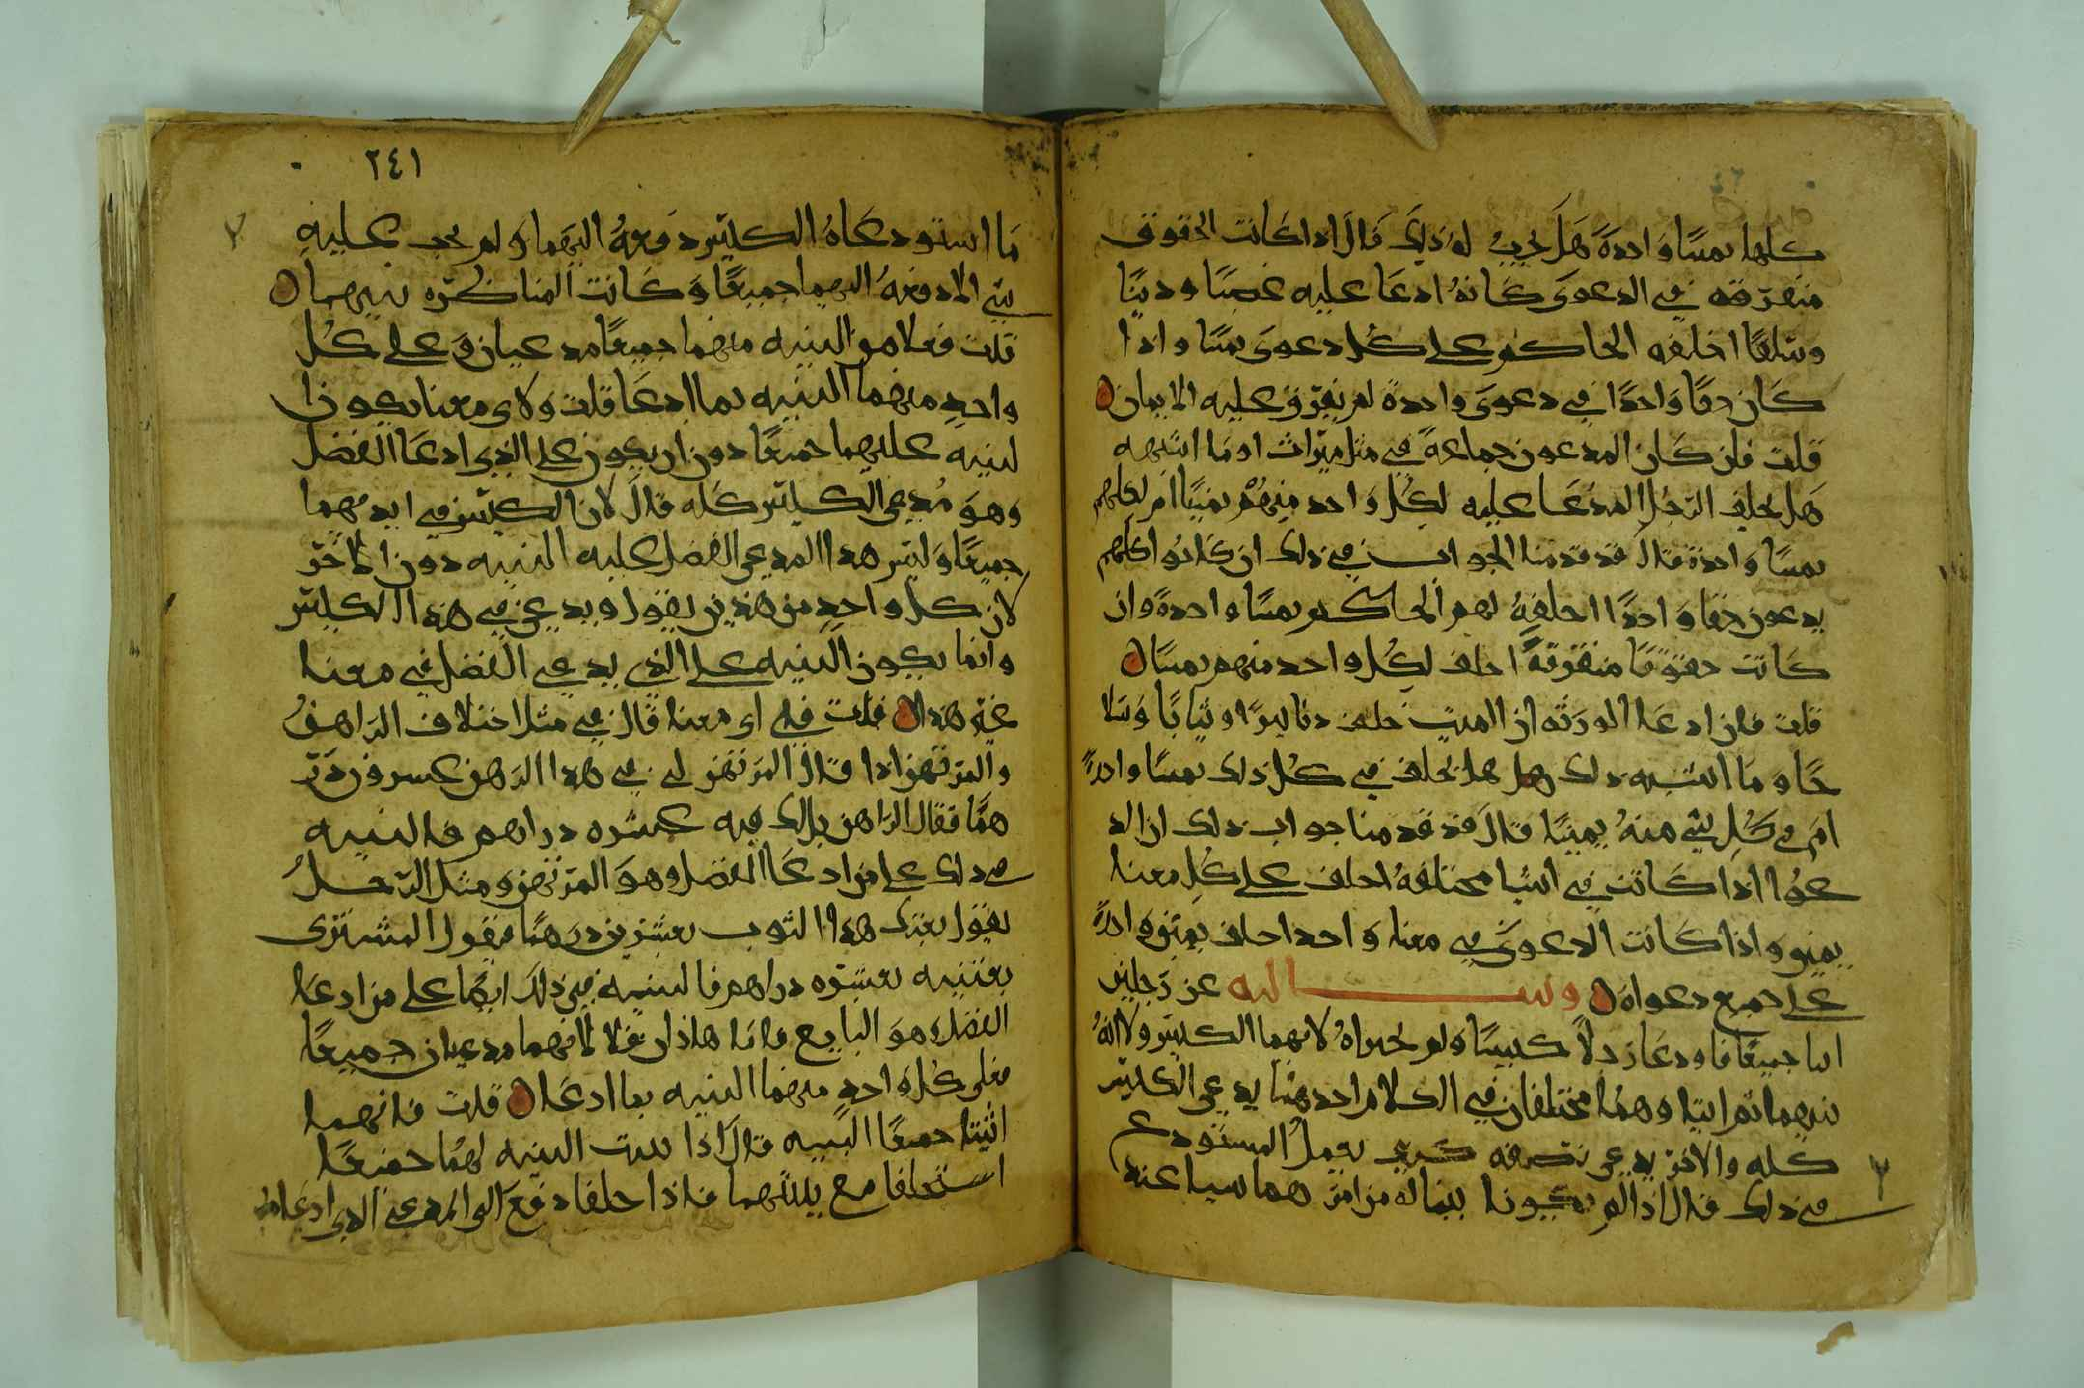 كلها يمينا واحدة هل يجب له ذلك قال اذا كانت الحقوق
متفرقه في الدعوى كانه ادعا عليه غصبا ودينا
وسلفا احلفه الحاكم على كل دعوى يمينا واذا
كان حقا واحدا في دعوى واحدة لم يفرق عليه الايمان ه
قلت فان كان المدعون جماعة في مثل ميراث او ما اشبهه
هل يحلف الرجل المدعا عليه لكل واحد منهم يمينا ام لكلهم
يمينا واحدة قال قد قدمنا الجواب في ذلك ان كانوا كلهم
يدعون حقا واحدا احلفه لهم الحاكم يمينا واحدة وان
كانت حقوقا متفرقة احلف لكل واحد منهم يمينا ه
قلت فان ادعا الورثه ان الميت خلف دنانيرا او ثيابا وسلا
حا وما اشبه ذلك هل يحلف في كل ذلك يمينا واحدة
ام في كل شي منه يمينا قال قد قدمنا جواب ذلك ان الد
عوا اذا كانت في اشيا مختلفه احلف على كل معنا
يمين واذا كانت الدعوى في معنا واحد احلف يمين واحدة
على جميع دعواه ه وسالته عن رجلين
اتيا جميعا فاودعا رجلا كيسا ولم يخبراه لانهما الكيس ولا انه
بينهما ثم اتيا وهما مختلفان في الكلام احدهما يدعي الكيس
كله والاخر يدعي نصفه كيف يعمل المستودع
في ذلك قال اذا لم يكونا بينا له من امر هما شيا عند
٢٤١
ما استودعاه الكيس دفعه اليهما ولم يجب عليه
شي الا دفعه اليهما جميعا وكانت المناكره بينهما ه
قلت فعلا من البينه منهما جميعا مدعيان وعلى كل
واحد منهما البينه بما ادعا قلت ولاي معنا يكون ا
لبينه عليهما جميعا دون ان يكون على الذي ادعا الفضل
وهو مدعي الكيس كله قال لان الكيس في ايديهما
جميعا وليس هذا المدعي الفضل عليه البينه دون الاخر
لان كل واحد من هذين يقول ويدعي في هذا الكيس
وانما يكون البينه على الذي يدعي الفضل في معنا
غير هذا ه قلت في اي معنا قال في مثل اختلاف الراهن
والمرتهن اذا قال المرتهن لي في هذا الرهن عشرون در
هما فقال الراهن بل لك فيه عشره دراهم فالبينه
في ذلك على من ادعا الفضل وهو المرتهن ومثل الرجل
يقول بعتك هذا الثوب بعشرين درهما فيقول المشتري
بعتنيه بعشره دراهم فالبينه في ذلك ايضا على من ادعا
الفضل وهو البايع واما هاذان فلا لانهما مدعيان جميعا
فعلى كل واحد منهما البينه بما ادعا ه قلت فانهما
اثبتا جميعا البينه قال اذا ثبتت البينه لهما جميعا
استحلفا مع بينتهما فاذا حلفا دفع الى المدعي الذي ادعا